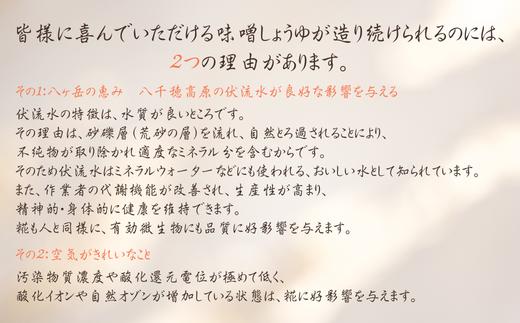 皆様に喜んでいただける味噌しょうゆが造り続けられるのには、
2つの理由があります。
その1:八ヶ岳の恵み　八千穂高原の伏流水が良好な影響を与える
伏流水の特徴は、水質が良いところです。
その理由は、砂礫層(荒砂の層)を流れ、自然とろ過されることにより、
不純物が取り除かれ適度なミネラル分を含むからです。
そのため伏流水はミネラルウォーターなどにも使われる、おいしい水として知られています。
また、作業者の代謝機能が改善され、生産性が高まり、
精神的・身体的に健康を維持できます。
糀も人と同様に、有効微生物にも品質に好影響を与えます。
その2:空気がきれいなこと
汚染物質濃度や酸化還元電位が極めて低く、
酸化イオンや自然オゾンが増加している状態は、糀に好影響を与えます。